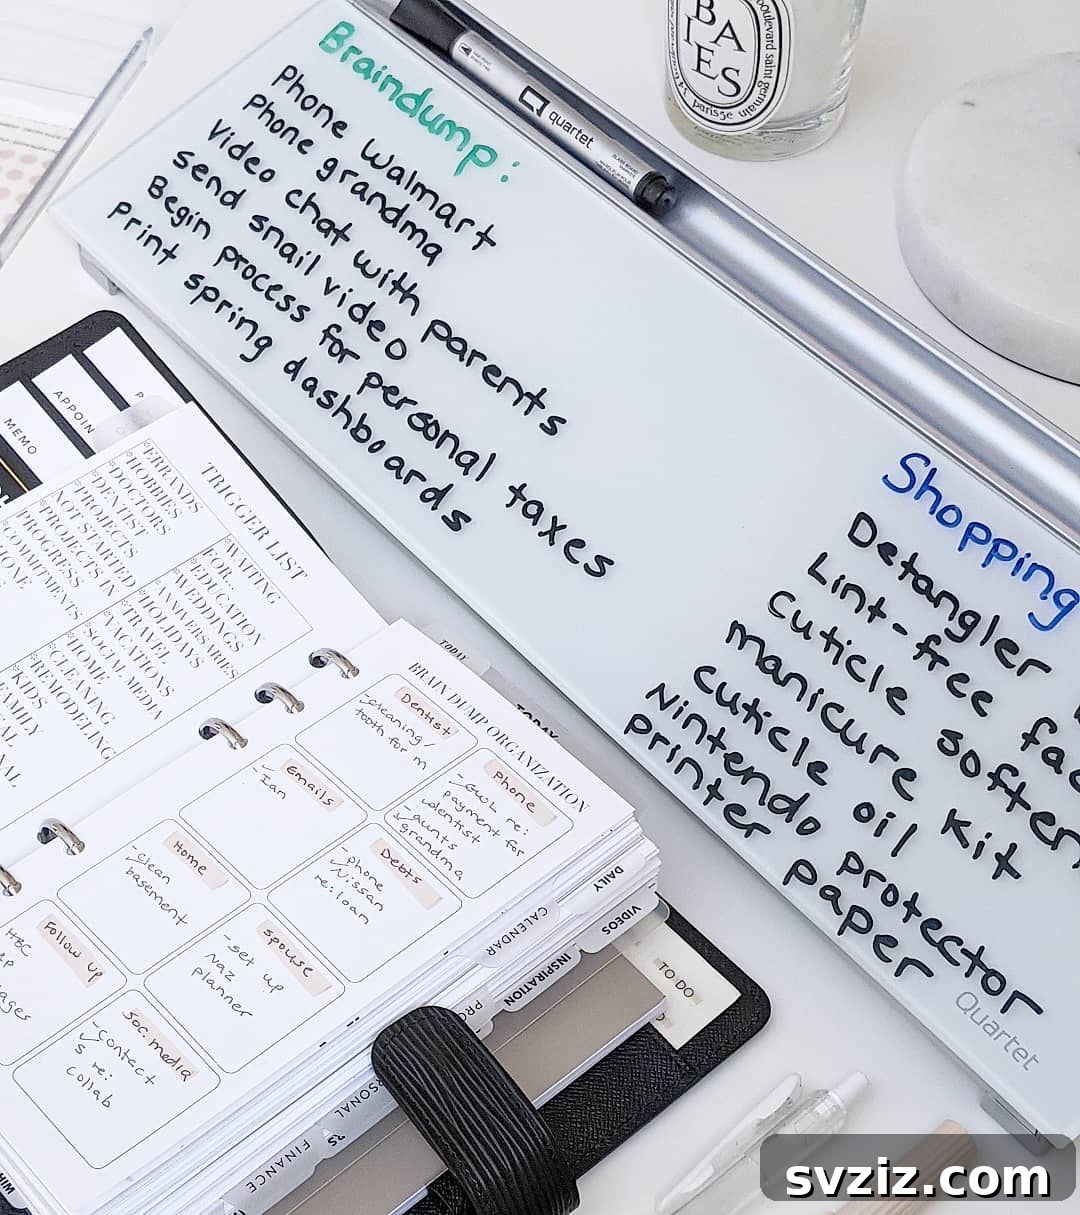 Braindump:
Phone Walmart
Phone grandma
Video chat with parents
send snail video
Begin process for personal taxes
Print spring dashboards
quartet
BA
IES
boulevard saint germain
paris5e
Shopping
Detangler
Lint-free
Cuticle soften
manicure kit
cuticle oil
Nintendo protector
Printer paper
Quartet
MEMO
APPOIN
TRIGGER LIST
*ERRANDS
*HOBBIES
*DOCTORS
*DENTIST
*PROJECTS
NOT STARTED
*PROJECTS IN
PROGRESS
*WAITING
FOR...
*EDUCATION
*WEDDINGS
*ANNIVERSARIES
*HOLIDAYS
*TRAVEL
*VACATIONS
*SOCIAL MEDIA
*HOME
*CLEANING
*REMODELING
*KIDS
TODAY
TODAY
BRAIN DUMP ORGANIZATION
Dentist
-cleaning/
tooth for
m
Phone
-GWL re:
payment for
dentist
-aunts
grandma
Emails
Ian
Debts
-phone
Nissan
re: loan
Home
-clean
basement
spouse
-set up
Naz
planner
Follow up
HBC
Soc. media
-contact
s re:
collab
DAILY
VIDEOS
CALENDAR
INSPIRATION
PRO
TO DO
RSONAL
RS
FINANCE
HIM
svziz.com